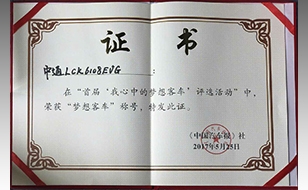 证书
中通LCK6108EVG：
在“首届‘我心中的梦想客车’评选活动”中，
荣获“梦想客车”称号，特发此证。
《中国汽车报》社
2017年5月25日